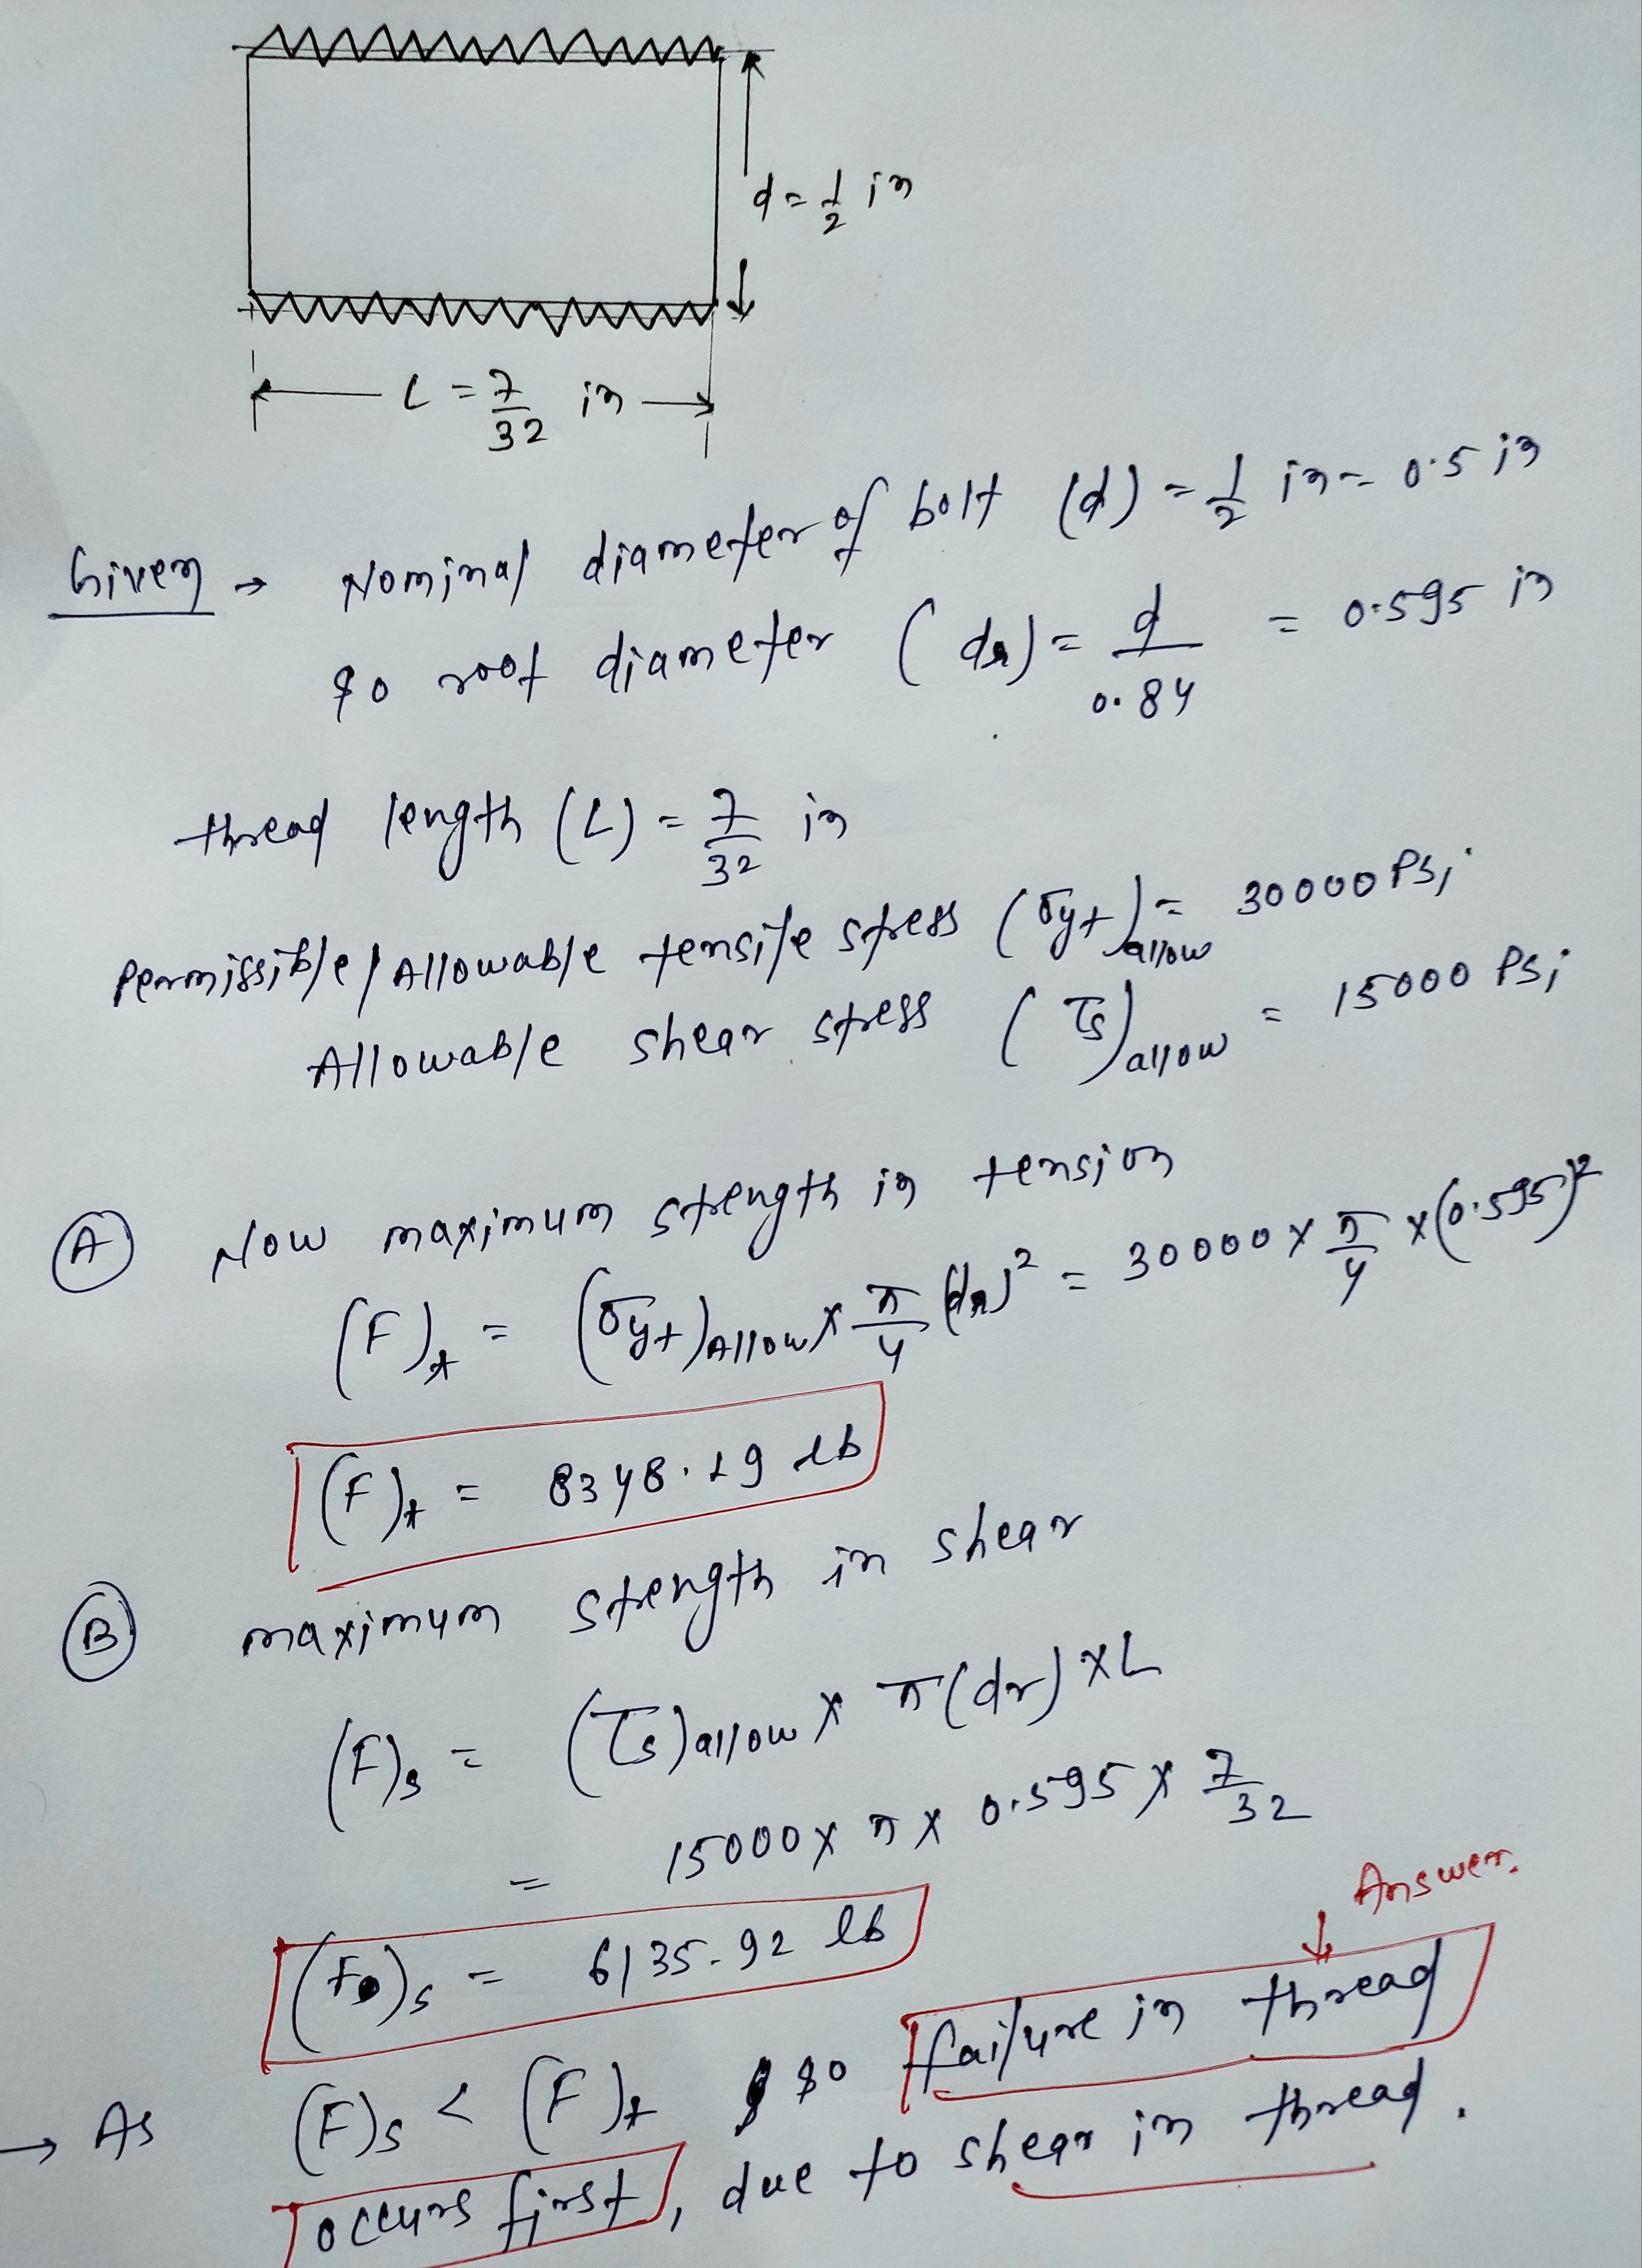 d = 1/2 in
L = 7/32 in
Given → Nominal diameter of bolt (d) = 1/2 in = 0.5 in
So root diameter (dr) = d/0.84 = 0.595 in
thread length (L) = 7/32 in
Permissible/Allowable tensile stress (σyt)allow = 30000 Psi
Allowable shear stress (τs)allow = 15000 Psi
(A) Now maximum strength in tension
(F)t = (σyt)Allow × π/4 (dr)² = 30000 × π/4 × (0.595)²
(F)t = 8348.19 lb
(B) maximum strength in shear
(F)s = (τs)allow × π(dr) × L
= 15000 × π × 0.595 × 7/32
Answer.
(F)s = 6135.92 lb
→ As (F)s < (F)t so failure in thread
occurs first, due to shear in thread.